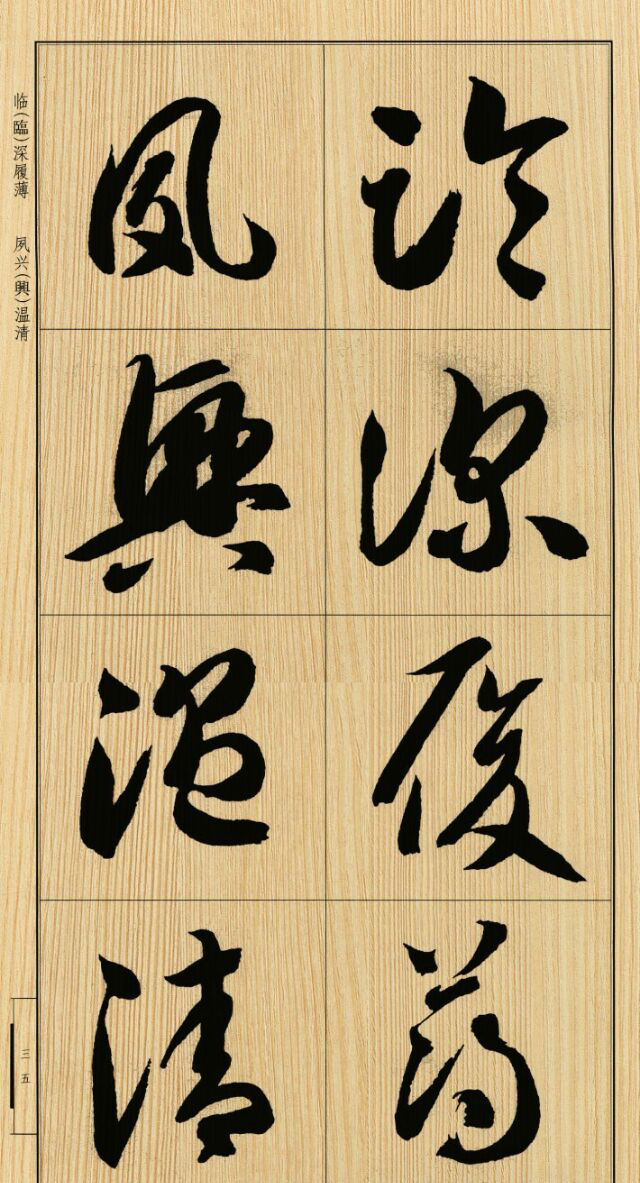 臨深履薄
夙興温清
临(臨)深履薄 夙兴(興)温清
三五